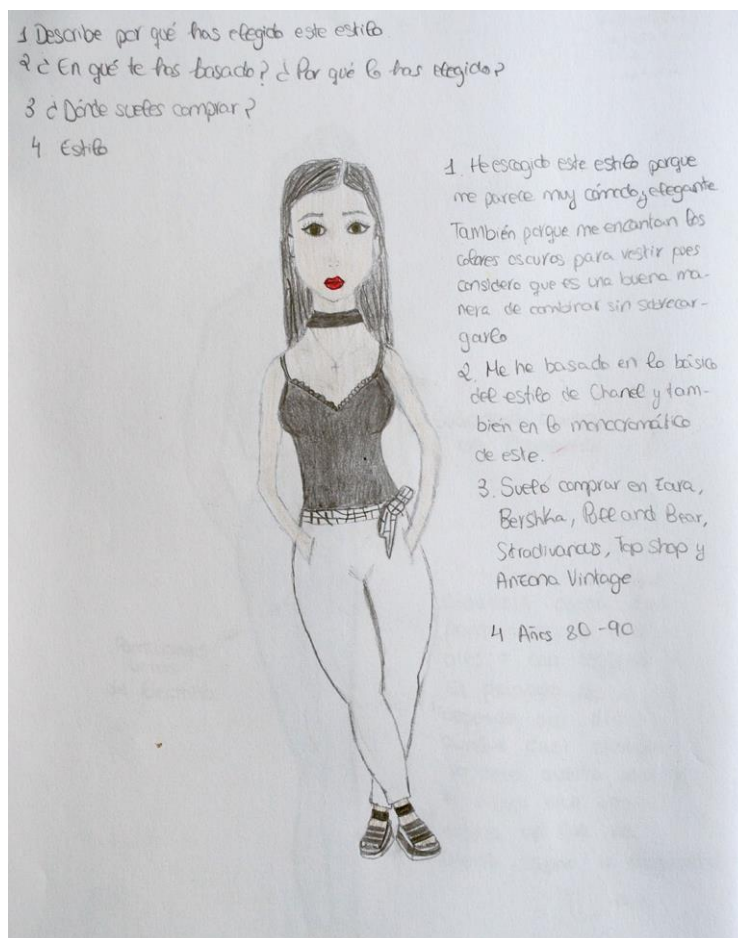 1 Describe por qué has elegido este estilo
2 ¿En qué te has basado? ¿Por qué lo has elegido?
3 ¿Dónde sueles comprar?
4 Estilo
1. He escogido este estilo porque
me parece muy cómodo y elegante
También porque me encantan los
colores oscuros para vestir pues
considero que es una buena ma-
nera de combinar sin sobrecar-
garlo
2. Me he basado en lo básico
del estilo de Chanel y tam-
bién en lo monocromático
de este.
3. Suelo comprar en Zara,
Bershka, Pull and Bear,
Stradivarius, Top shop y
Anzona Vintage
4 Años 80-90